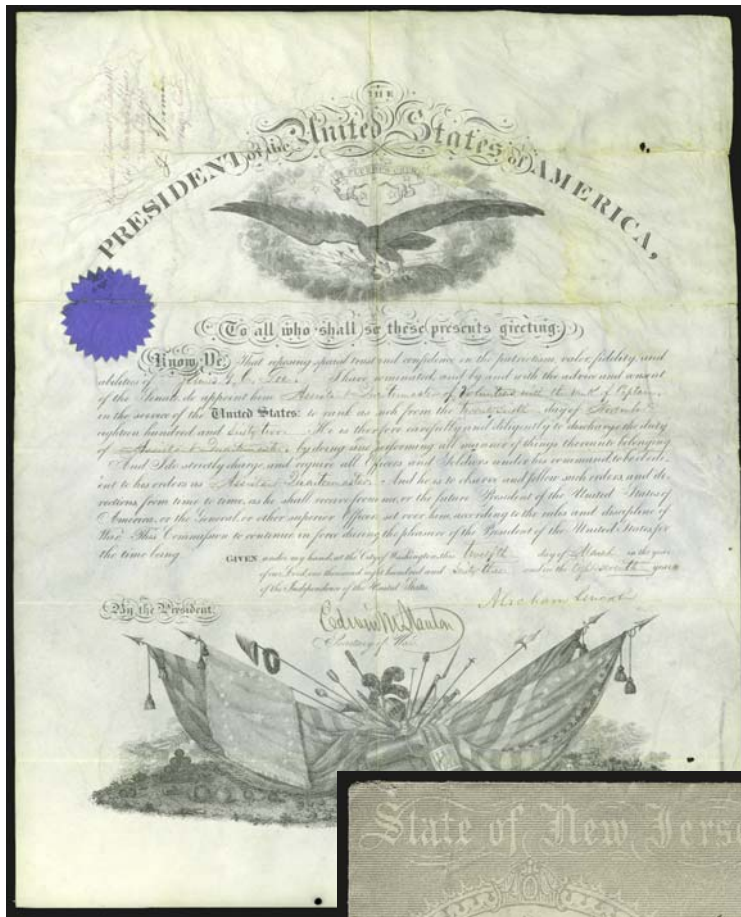 THE
PRESIDENT of the United States of AMERICA,
E PLURIBUS UNUM
To all who shall se these presents greeting:
Know Ye, That reposing special trust and confidence in the patriotism, valor, fidelity, and
abilities of I have nominated, and by and with the advice and consent
of the Senate, do appoint him Assistant Quartermaster of Volunteers with the rank of Captain
in the service of the United States: to rank as such from the day of
eighteen hundred and sixty two He is therefore carefully and diligently to discharge the duty
of Assistant Quartermaster by doing and performing all manner of things thereunto belonging.
And I do strictly charge, and require all Officers and Soldiers under his command to be obedi-
ent to his orders as Assistant Quartermaster. And he is to observe and follow such orders, and di-
rections, from time to time, as he shall receive from me, or the future President of the United States of
America, or the General, or other superior Officers set over him, according to the rules and discipline of
War. This Commission to continue in force during the pleasure of the President of the United States, for
the time being.
GIVEN under my hand, at the City of Washington, this twelfth day of March in the year
of our Lord one thousand eight hundred and sixty three and in the eighty seventh year
of the Independence of the United States.
Abraham Lincoln
By the President,
Edwin M Stanton
Secretary of War.
State of New Jerse